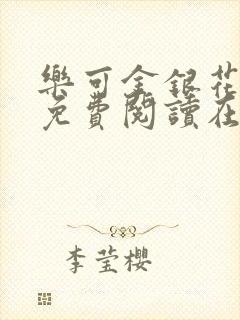 樂可金銀花
免費閱讀在
李莹櫻